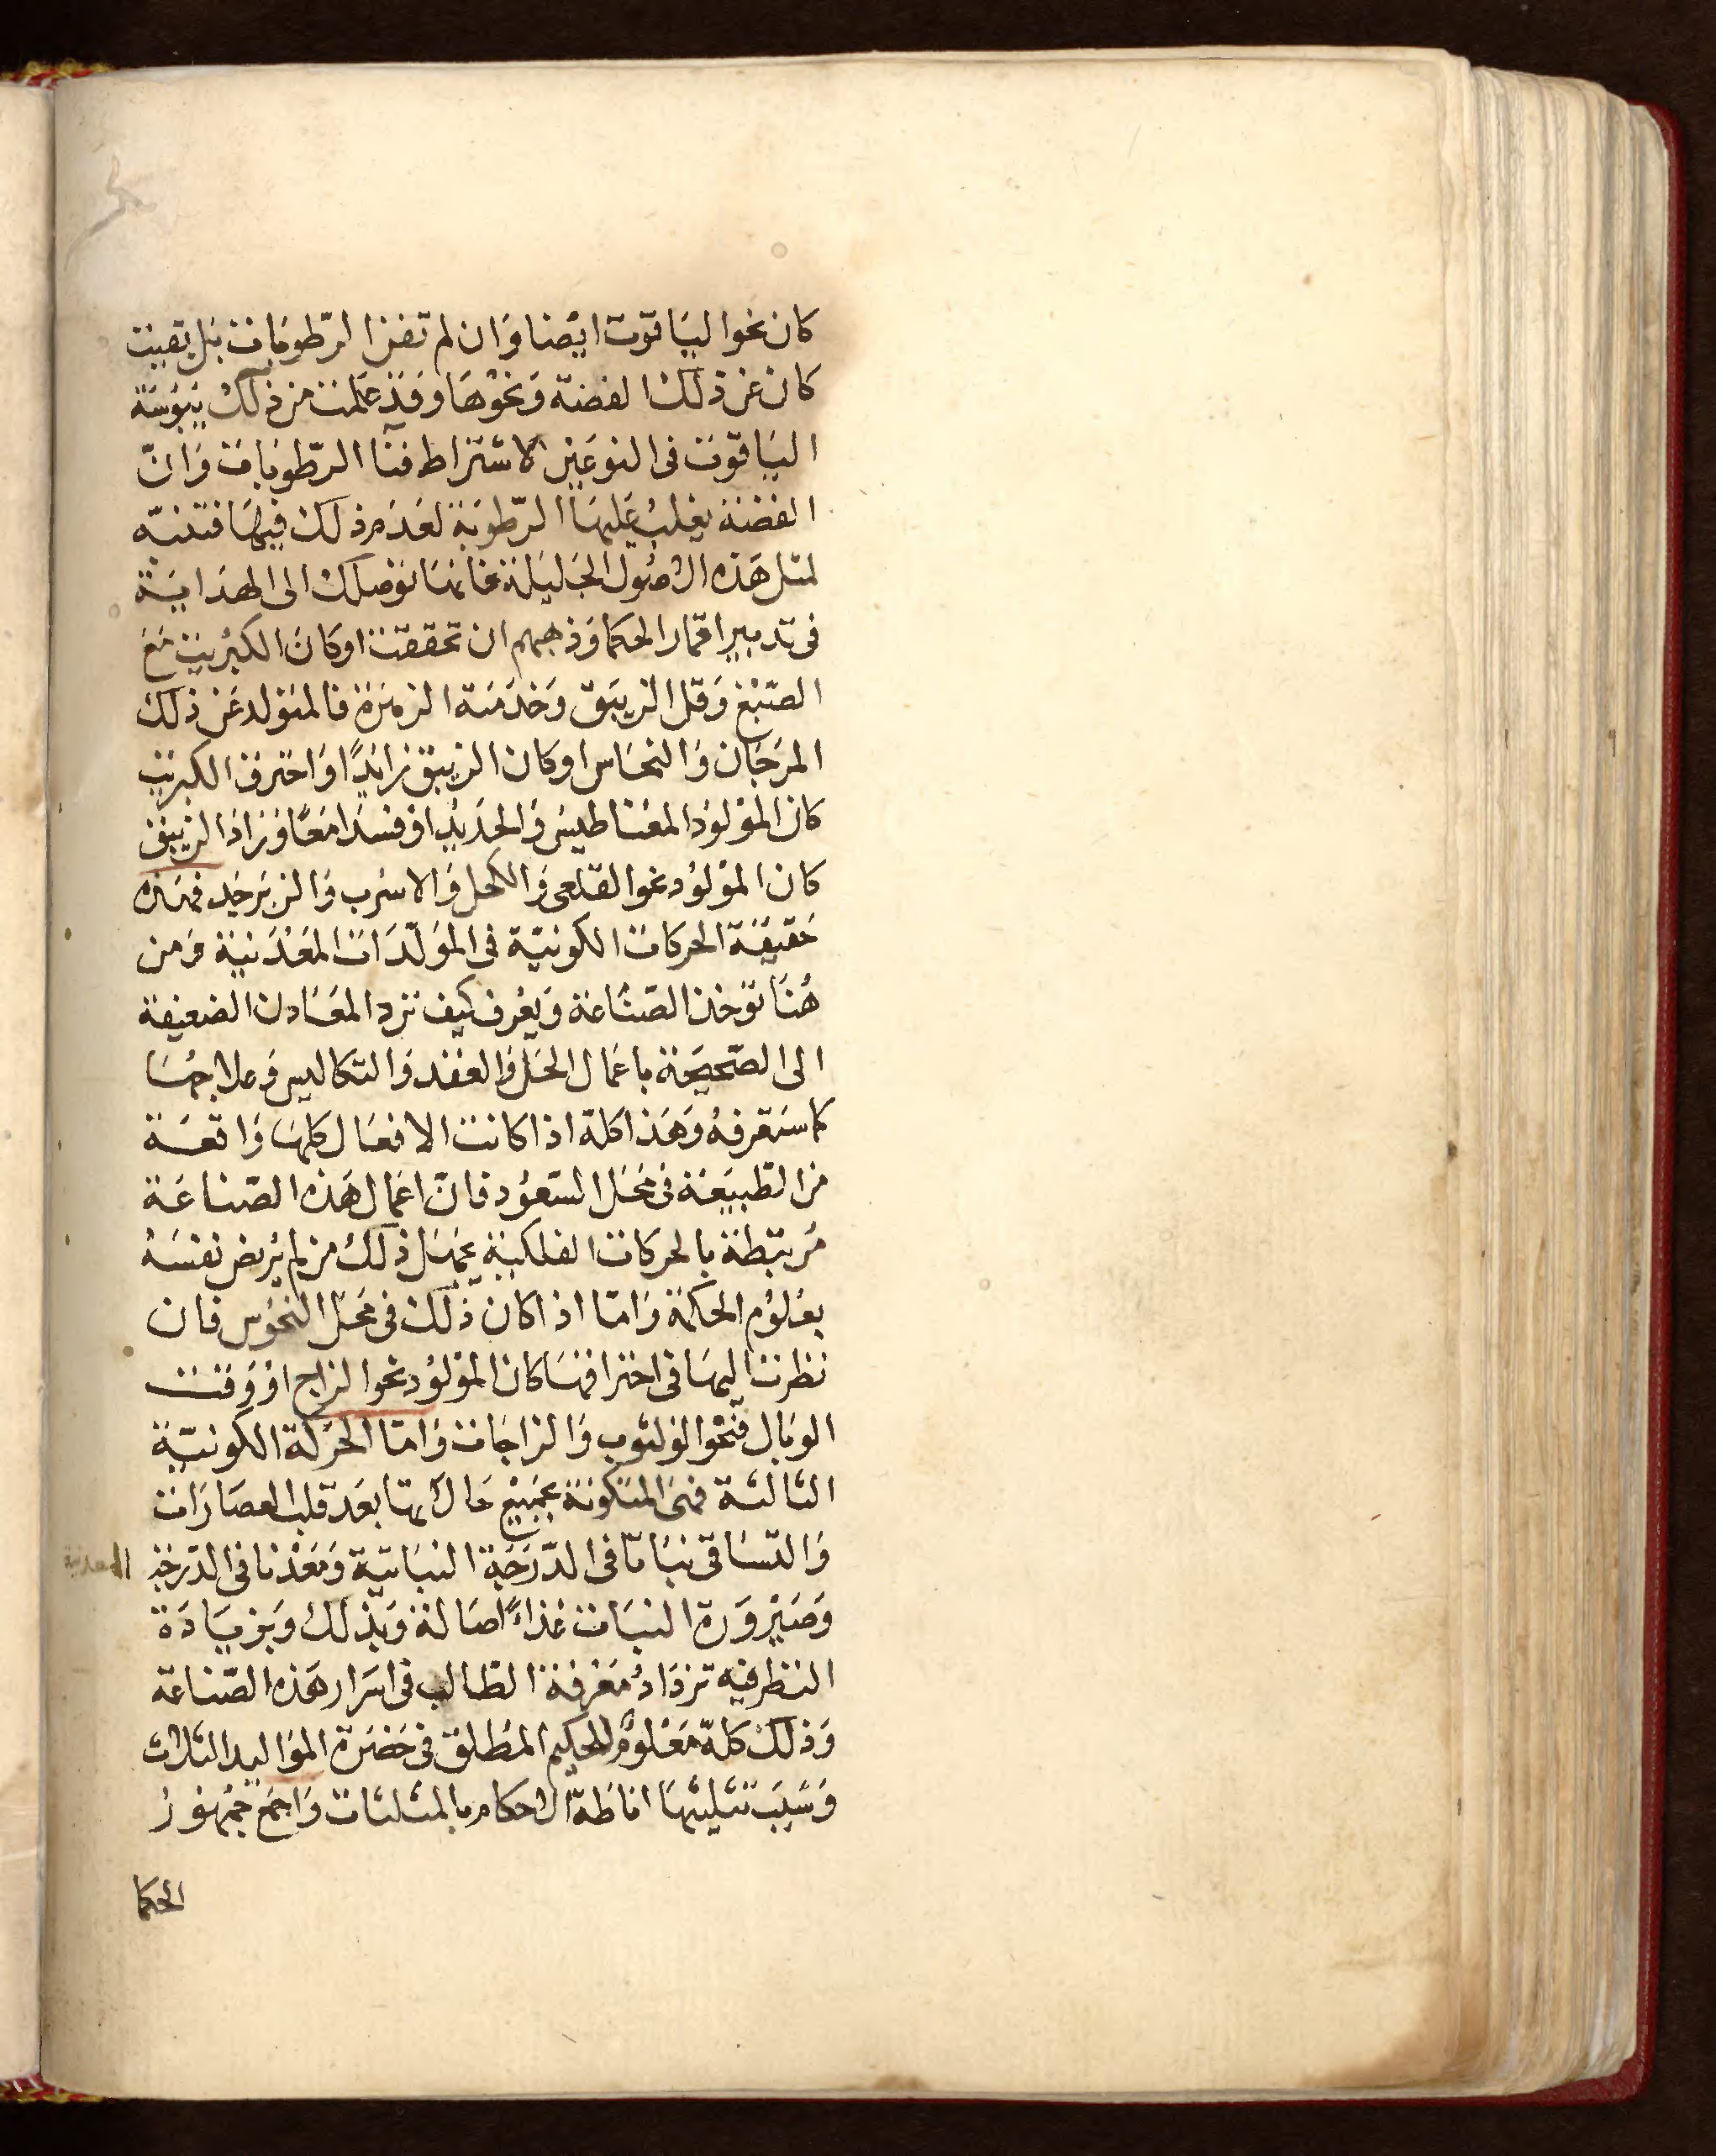 كان نحو الياقوت ايضا وان لم تفن الرطوبات بل بقيت
كان عن ذلك الفضة ونحوها وقد علمت من ذلك يبوسة
الياقوت فى النوعين لاشتراط فنا الرطوبات وان
الفضة يغلب عليها الرطوبة لعدم ذلك فيها فتنبه
لمثل هذه الاصول الجليلة فانها توصلك الى الهداية
فى تدبير اقمار الحكما وذهبهم ان تحققت او كان الكبريت مع
الصبغ وقل الزيبق وخدمته الزهرة فالمتولد عن ذلك
المرجان والنحاس او كان الزيبق زايدًا واحترق الكبريت
كان المولود المغناطيس والحديد او فسدا معًا وزاد الزيبق
كان المولود نحو القلعى والكحل والاسرب والزبرجد فهذه
حقيقة الحركات الكونية فى المولدات المعدنية ومن
هنا توخذ الصناعة ويعرف كيف ترد المعادن الضعيفة
الى الصحيحة باعمال الحل والعقد والتكاليس وعلاجها
كما ستعرفه وهذا كله اذا كانت الافعال كلها واقعة
من الطبيعة فى محل السعود فان اعمال هذه الصناعة
مرتبطة بالحركات الفلكية يجهل ذلك من لم يريض نفسه
بعلوم الحكمة واما اذا كان ذلك فى محل النحوس فان
نظرت اليها فى احتراقها كان المولود نحو الزاج او وقت
الوبال فنحو الزاجات واما الحركة الكونية
الثالثة فهى المتكونة بجميع حالاتها بعد قلب العصارات
والتساقى نباتا فى الدرجة النباتية ومعدنا فى الدرجة المعدنية
وصيرورة النبات غذاءً اصالة وبذلك وبزيادة
النظر فيه تزداد معرفة الطالب فى اسرار هذه الصناعة
وذلك كله معلوم للحكيم المطلق فى حضرة المواليد الثلاث
وسبب تثليثها اناطة الاحكام بالمثلثات واجمع جمهور
الحكما